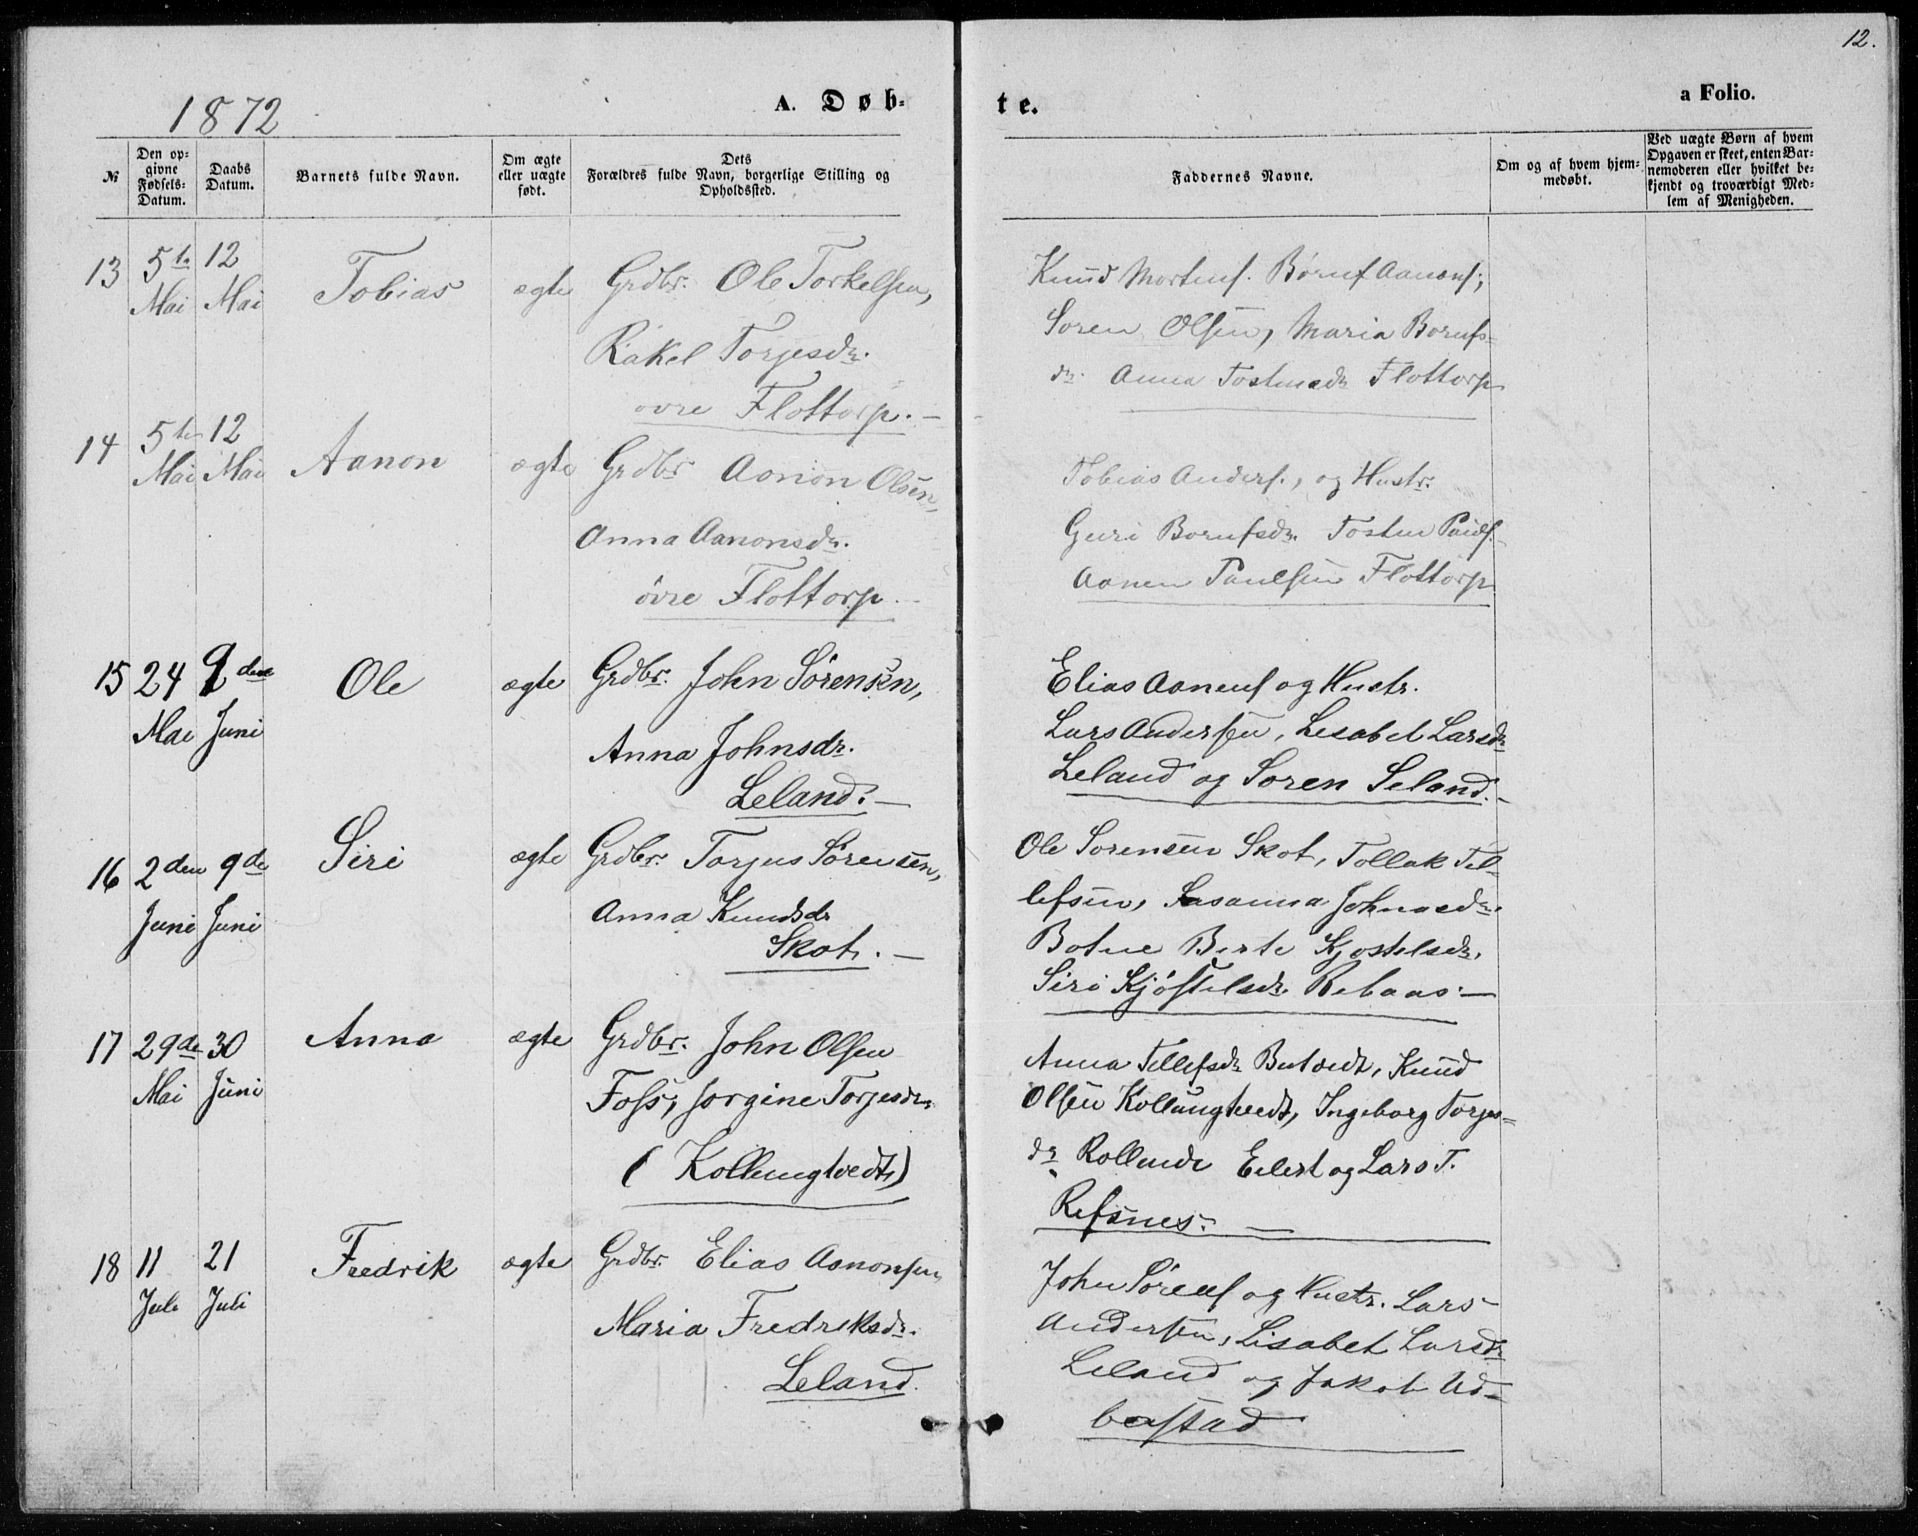 12.
1872
A. Døb-
te.
a Folio.
№
Den op-
givne
Fødsels-
Datum.
Daabs
Datum.
Barnets fulde Navn.
Om ægte
eller uægte
født.
Dets
Forældres fulde Navn, borgerlige Stilling og
Opholdssted.
Faddernes Navne.
Om og af hvem hjem-
medøbt.
Ved uægte Børn af hvem
Opgaven er skeet, enten Bar-
nemoderen eller hvilket be-
kjendt og troværdigt Med-
lem af Menigheden.
13
5te
Mai
12
Mai
Tobias
ægte
Grdbr. Ole Torkelsen,
Rakel Torjesdr.
øvre Flottorp. —
Knud Mortens. Børuf Aanons,
Søren Olsen, Maria Borufs-
dr. Anna Tostensdr Flottorp
14
5te
Mai
12
Mai
Aanon
ægte
Grdbr Aanon Olsen,
Anna Aanonsdr.
övre Flottorp.
Tobias Anders., og Hustr.
Guri Borufsdr. Tosten Pauls.
Aanen Paulsen Flottorp
15
24
Mai
9den
Juni
Ole
ægte
Grdbr. John Sörensen,
Anna Johnsdr.
Leland. —
Elias Aanens og Hustr.
Lars Andersen, Lisabet Larsdr
Leland og Soren Seland. -
16
2den
Juni
9de
Juni
Siri
ægte
Grdbr. Torjus Sörensen,
Anna Knudsdr
Skot. —
Ole Sorensen Skot, Tollak Tel-
lefsen, Susanna Johnsdr.
Botne Berte Kjostelsdr.
Siri Kjöstelsdr. Rebaas. —
17
29de
Mai
30
Juni
Anna
ægte
Grdbr. John Olsen
Foss, Jorgine Torjesdr.
(Kollungtvedt)
Anna Tellefsdr Knud
Olsen Kollungtvedt, Ingeborg Torjes-
dr Eilert og Lars T.
Refsnes. —
18
11
Juli
21
Juli
Fredrik
ægte
Grdbr. Elias Aanonsen
Maria Fredriksdr.
Leland.
John Sörens og Hustr. Lars
Andersen, Lisabet Larsdr
Leland og Jakob Ud-
bøstad